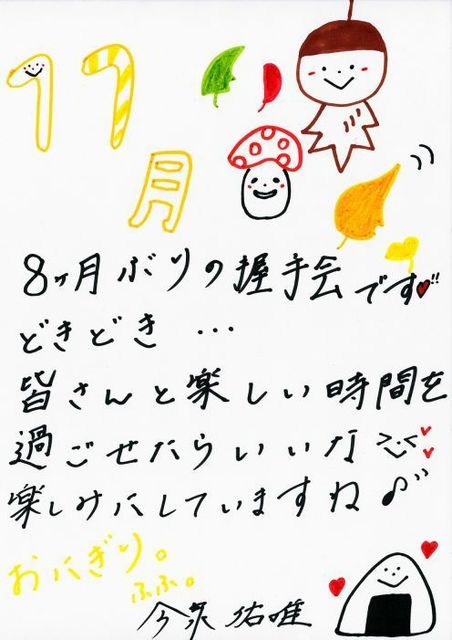 11
月
8ヶ月ぶりの握手会です♥!!
どきどき …
皆さんと楽しい時間を
過ごせたらいいな >⌣<♥♥
楽しみにしていますね♪
おにぎり。
ふふ。
今泉佑唯